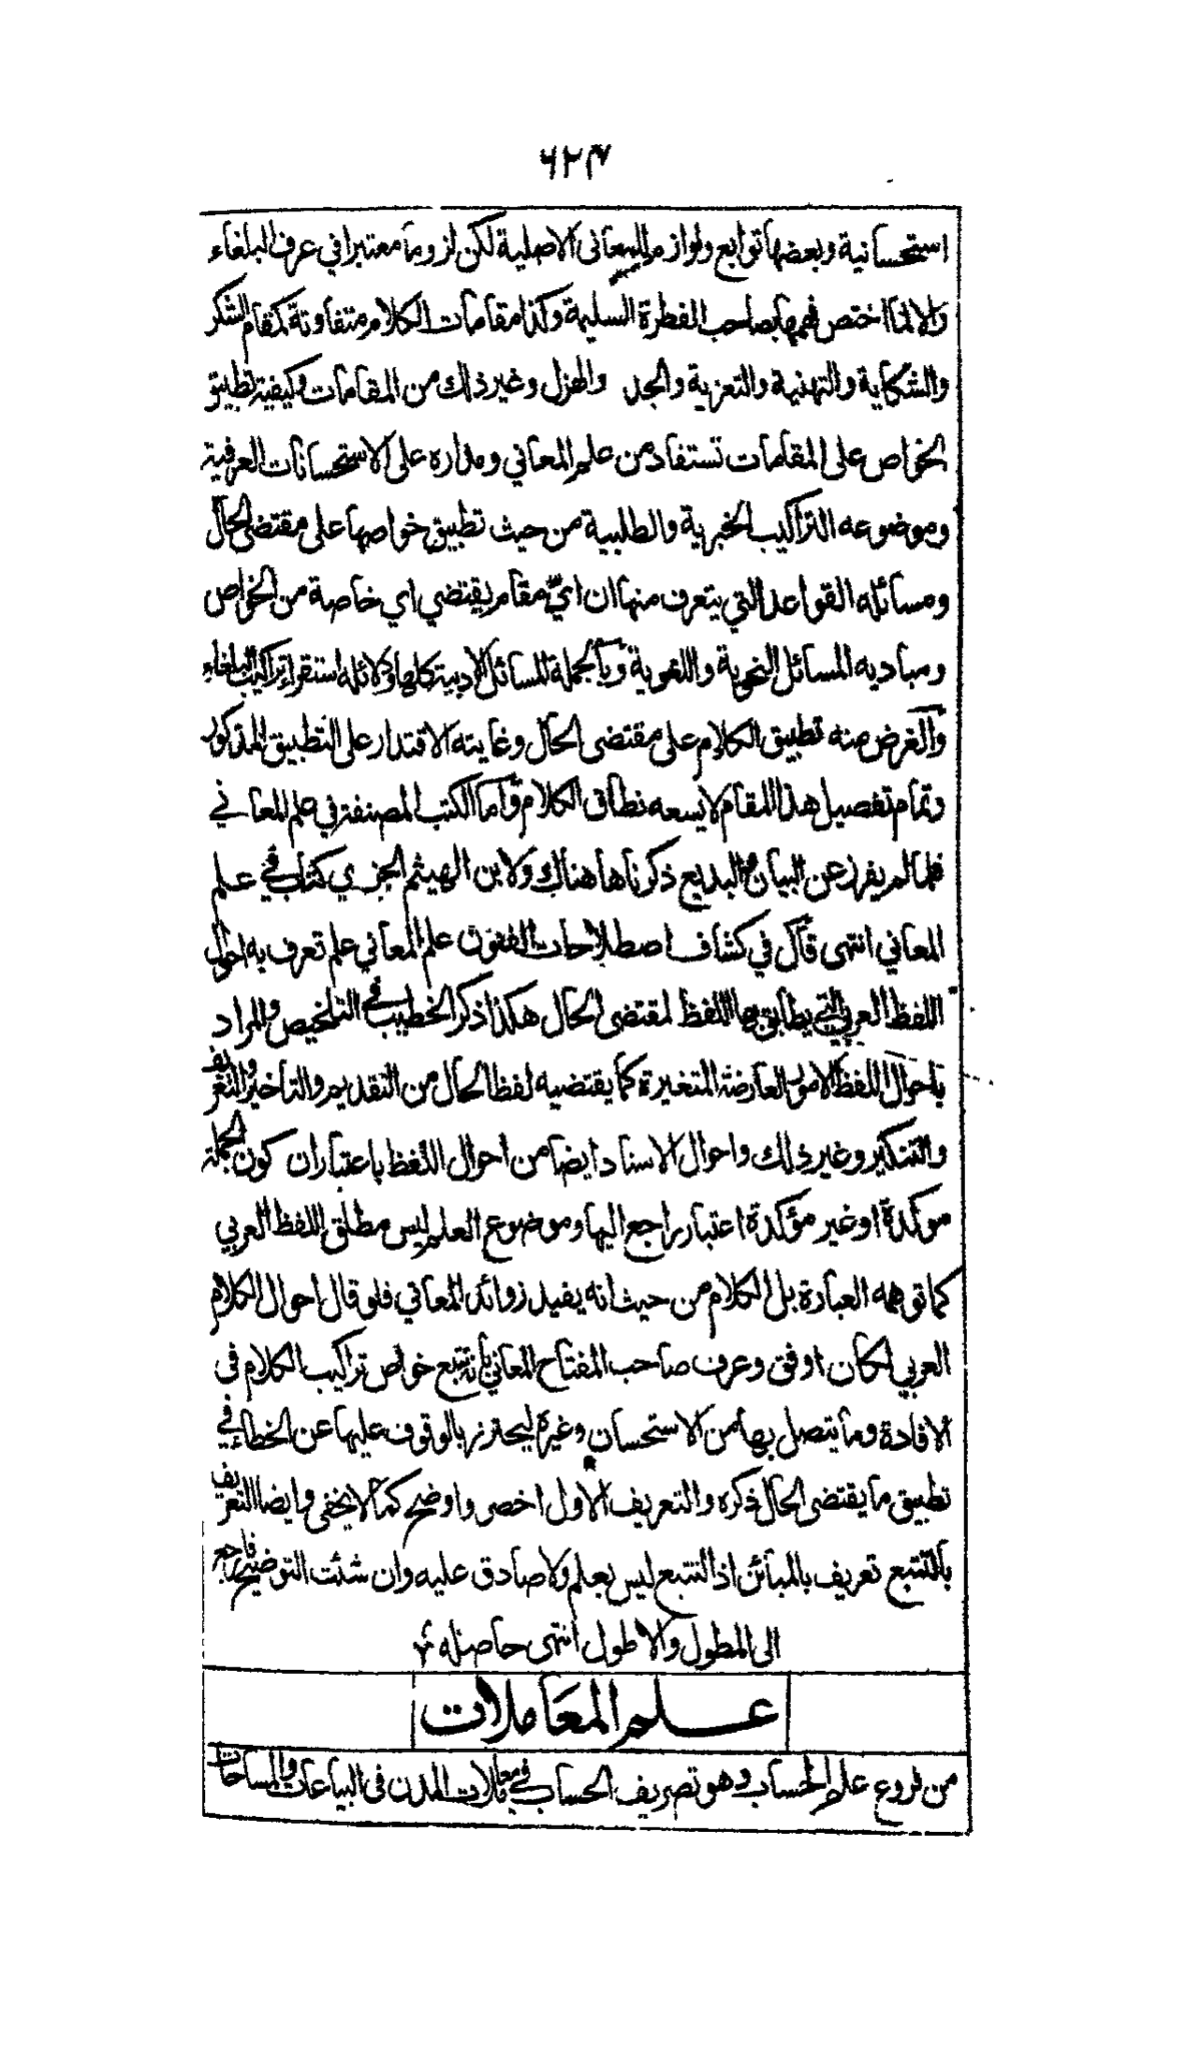 ٦٢٣
استحسانية وبعضها توابع ولوازم للمعاني الاصلية لكن لزوما معتبرا في عرف البلغاء
والا لما اختص فهمها بصاحب الفطرة السليمة وكذا مقامات الكلام متفاوتة كمقام الشكر
والشكاية والتهنية والتعزية والجد والهزل وغير ذلك من المقامات وكيفية تطبيق
الخواص على المقامات تستفاد من علم المعاني ومداره على الاستحسانات العرفية
وموضوعه التراكيب الخبرية والطلبية من حيث تطبيق خواصها على مقتضى الحال
ومسائله القواعد التي يتعرف منها ان اي مقام يقتضي اي خاصة من الخواص
ومباديه المسائل النحوية واللغوية وبالجملة المسائل الادبية كلها ودلائله استقراء تراكيب البلغاء
والغرض منه تطبيق الكلام على مقتضى الحال وغايته الاقتدار على التطبيق المذكور
وتمام تفصيل هذا المقام لا يسعه نطاق الكلام واما الكتب المصنفة في علم المعاني
فلما لم يفرز عن البيان والبديع ذكرناها هناك ولابن الهيثم الجزري كتاب في علم
المعاني انتهى قال في كشاف اصطلاحات الفنون علم المعاني علم تعرف به احوال
اللفظ العربي التي يطابق بها اللفظ لمقتضى الحال هكذا ذكر الخطيب في التلخيص والمراد
باحوال اللفظ الامور العارضة المتغيرة كما يقتضيه لفظ الحال من التقديم والتأخير والتعريف
والتنكير وغير ذلك واحوال الاسناد ايضا من احوال اللفظ باعتبار ان كون الجملة
موكدة او غير مؤكدة اعتبار راجع اليها وموضوع العلم ليس مطلق اللفظ العربي
كما توهمه العبارة بل الكلام من حيث انه يفيد زوائد المعاني فلو قال احوال الكلام
العربي لكان اوفق وعرف صاحب المفتاح المعاني بانه تتبع خواص تراكيب الكلام في
الافادة وما يتصل بها من الاستحسان وغيره ليحترز بالوقوف عليها عن الخطاء في
تطبيق ما يقتضى الحال ذكره والتعريف الاول اخصر واوضح كما لا يخفى وايضا التعريف
بالتتبع تعريف بالمبائن اذ التتبع ليس بعلم ولا صادق عليه وان شئت التوضيح فارجع
الى المطول والاطول انتهى حاصله
علم المعاملات
من فروع علم الحساب وهو تصريف الحساب في معاملات المدن في البياعات والمساحات